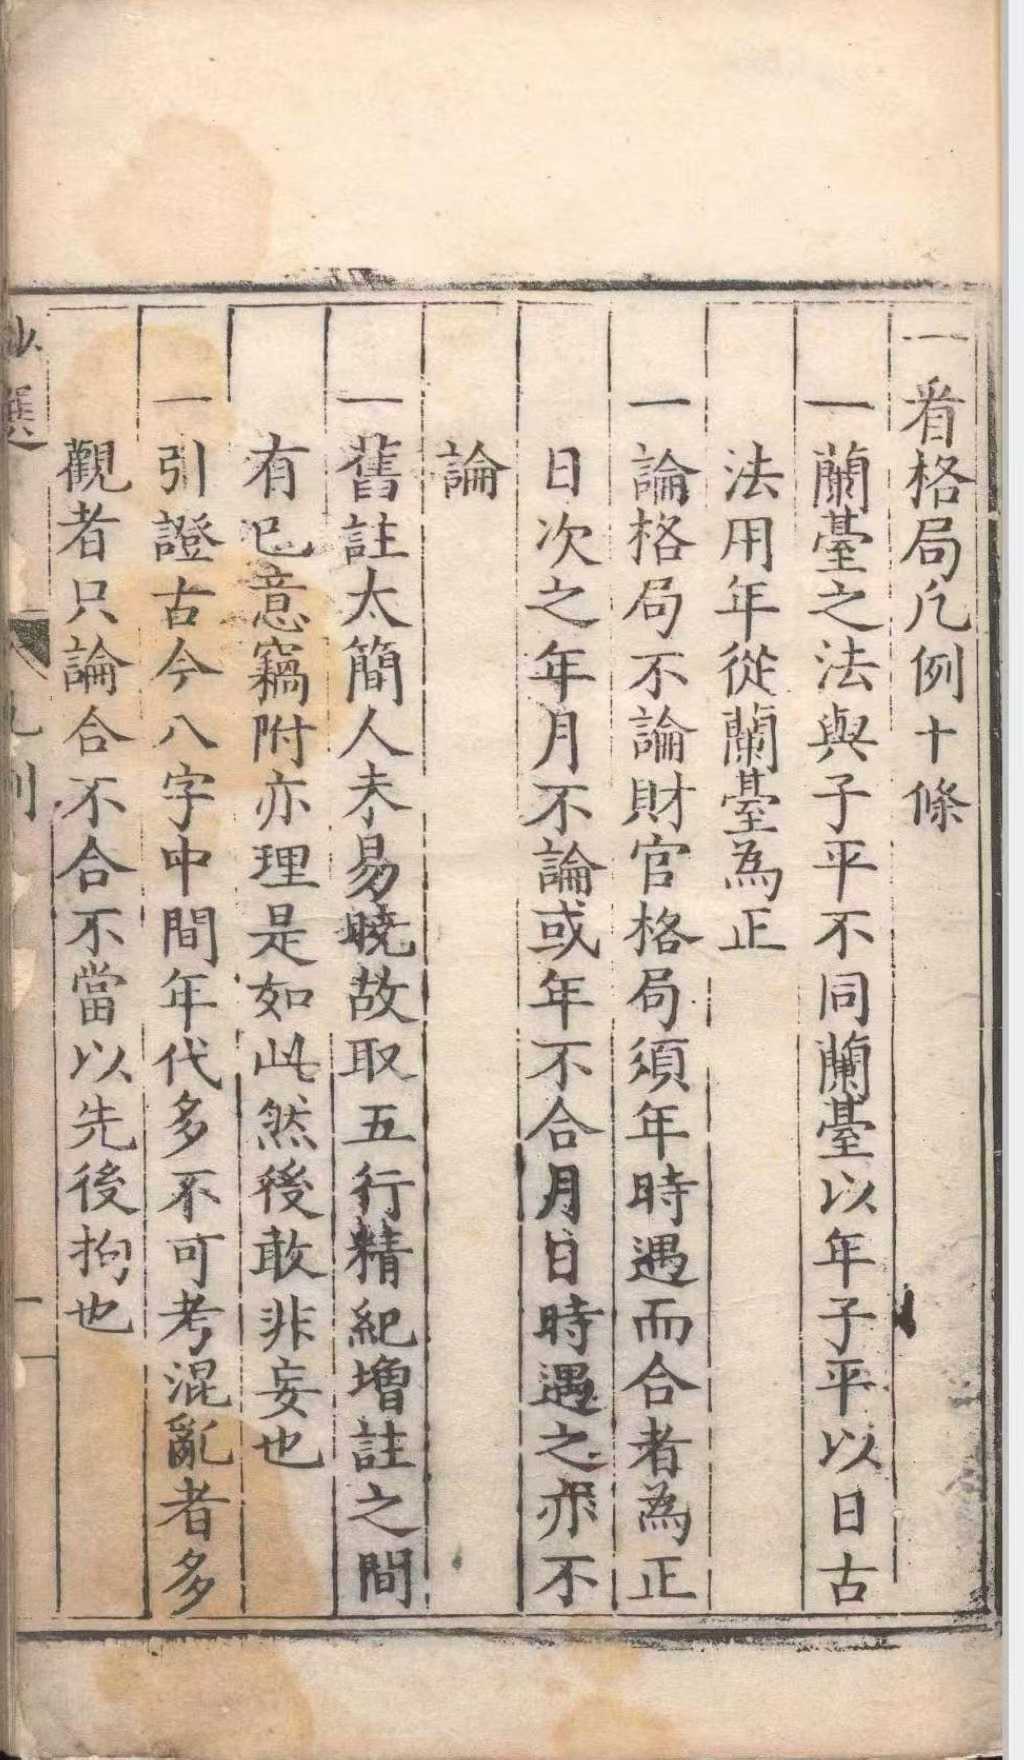 看格局凡例十條
一蘭臺之法與子平不同蘭臺以年子平以日古
法用年從蘭臺為正
一論格局不論財官格局須年時遇而合者為正
日次之年月不論或年不合月日時遇之亦不
論
一舊註太簡人未易曉故取五行精紀增註之間
有已意竊附亦理是如此然後敢非妄也
一引證古今八字中間年代多不可考混亂者多
觀者只論合不合不當以先後拘也
選
凡例
一